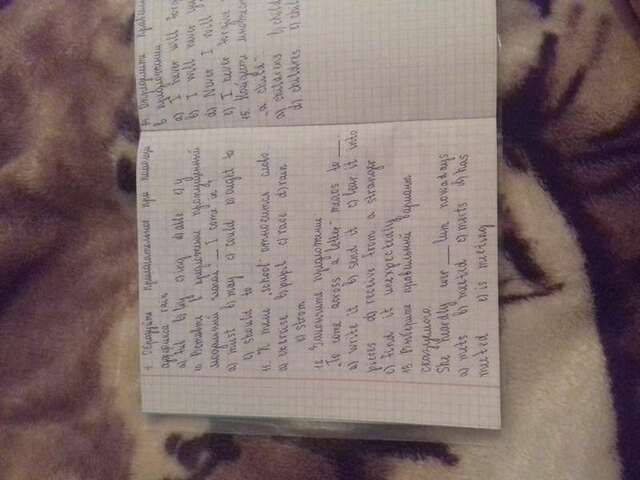 9. Образуйте прилагательное при помощи
суффикса rain
a) ful b) ly c) ing d) able e) y
10. Вставьте в предложение пропущенный
модальный глагол: "__ I come in"?
a) must b) may c) could d) ought to
e) should to
11. К теме "school" относится слово
a) exercise b) pupil c) race d) rain
e) strom
12. Закончите предложение
"To come across a letter" means to __.
a) write it b) send it c) tear it into
pieces d) receive from a stranger
e) find it unexpectedly
13. Выберите правильный вариант
сказуемого.
She heardly ever __ him nowadays
a) mets b) meeted c) meets d) has
meeted e) is meeting
14. Определите
в предложении
a) I never will
b) I will never
d) Never I will
e) I never forgive
15. Найдите
"a child"
a) childrens b)
d) childres e)